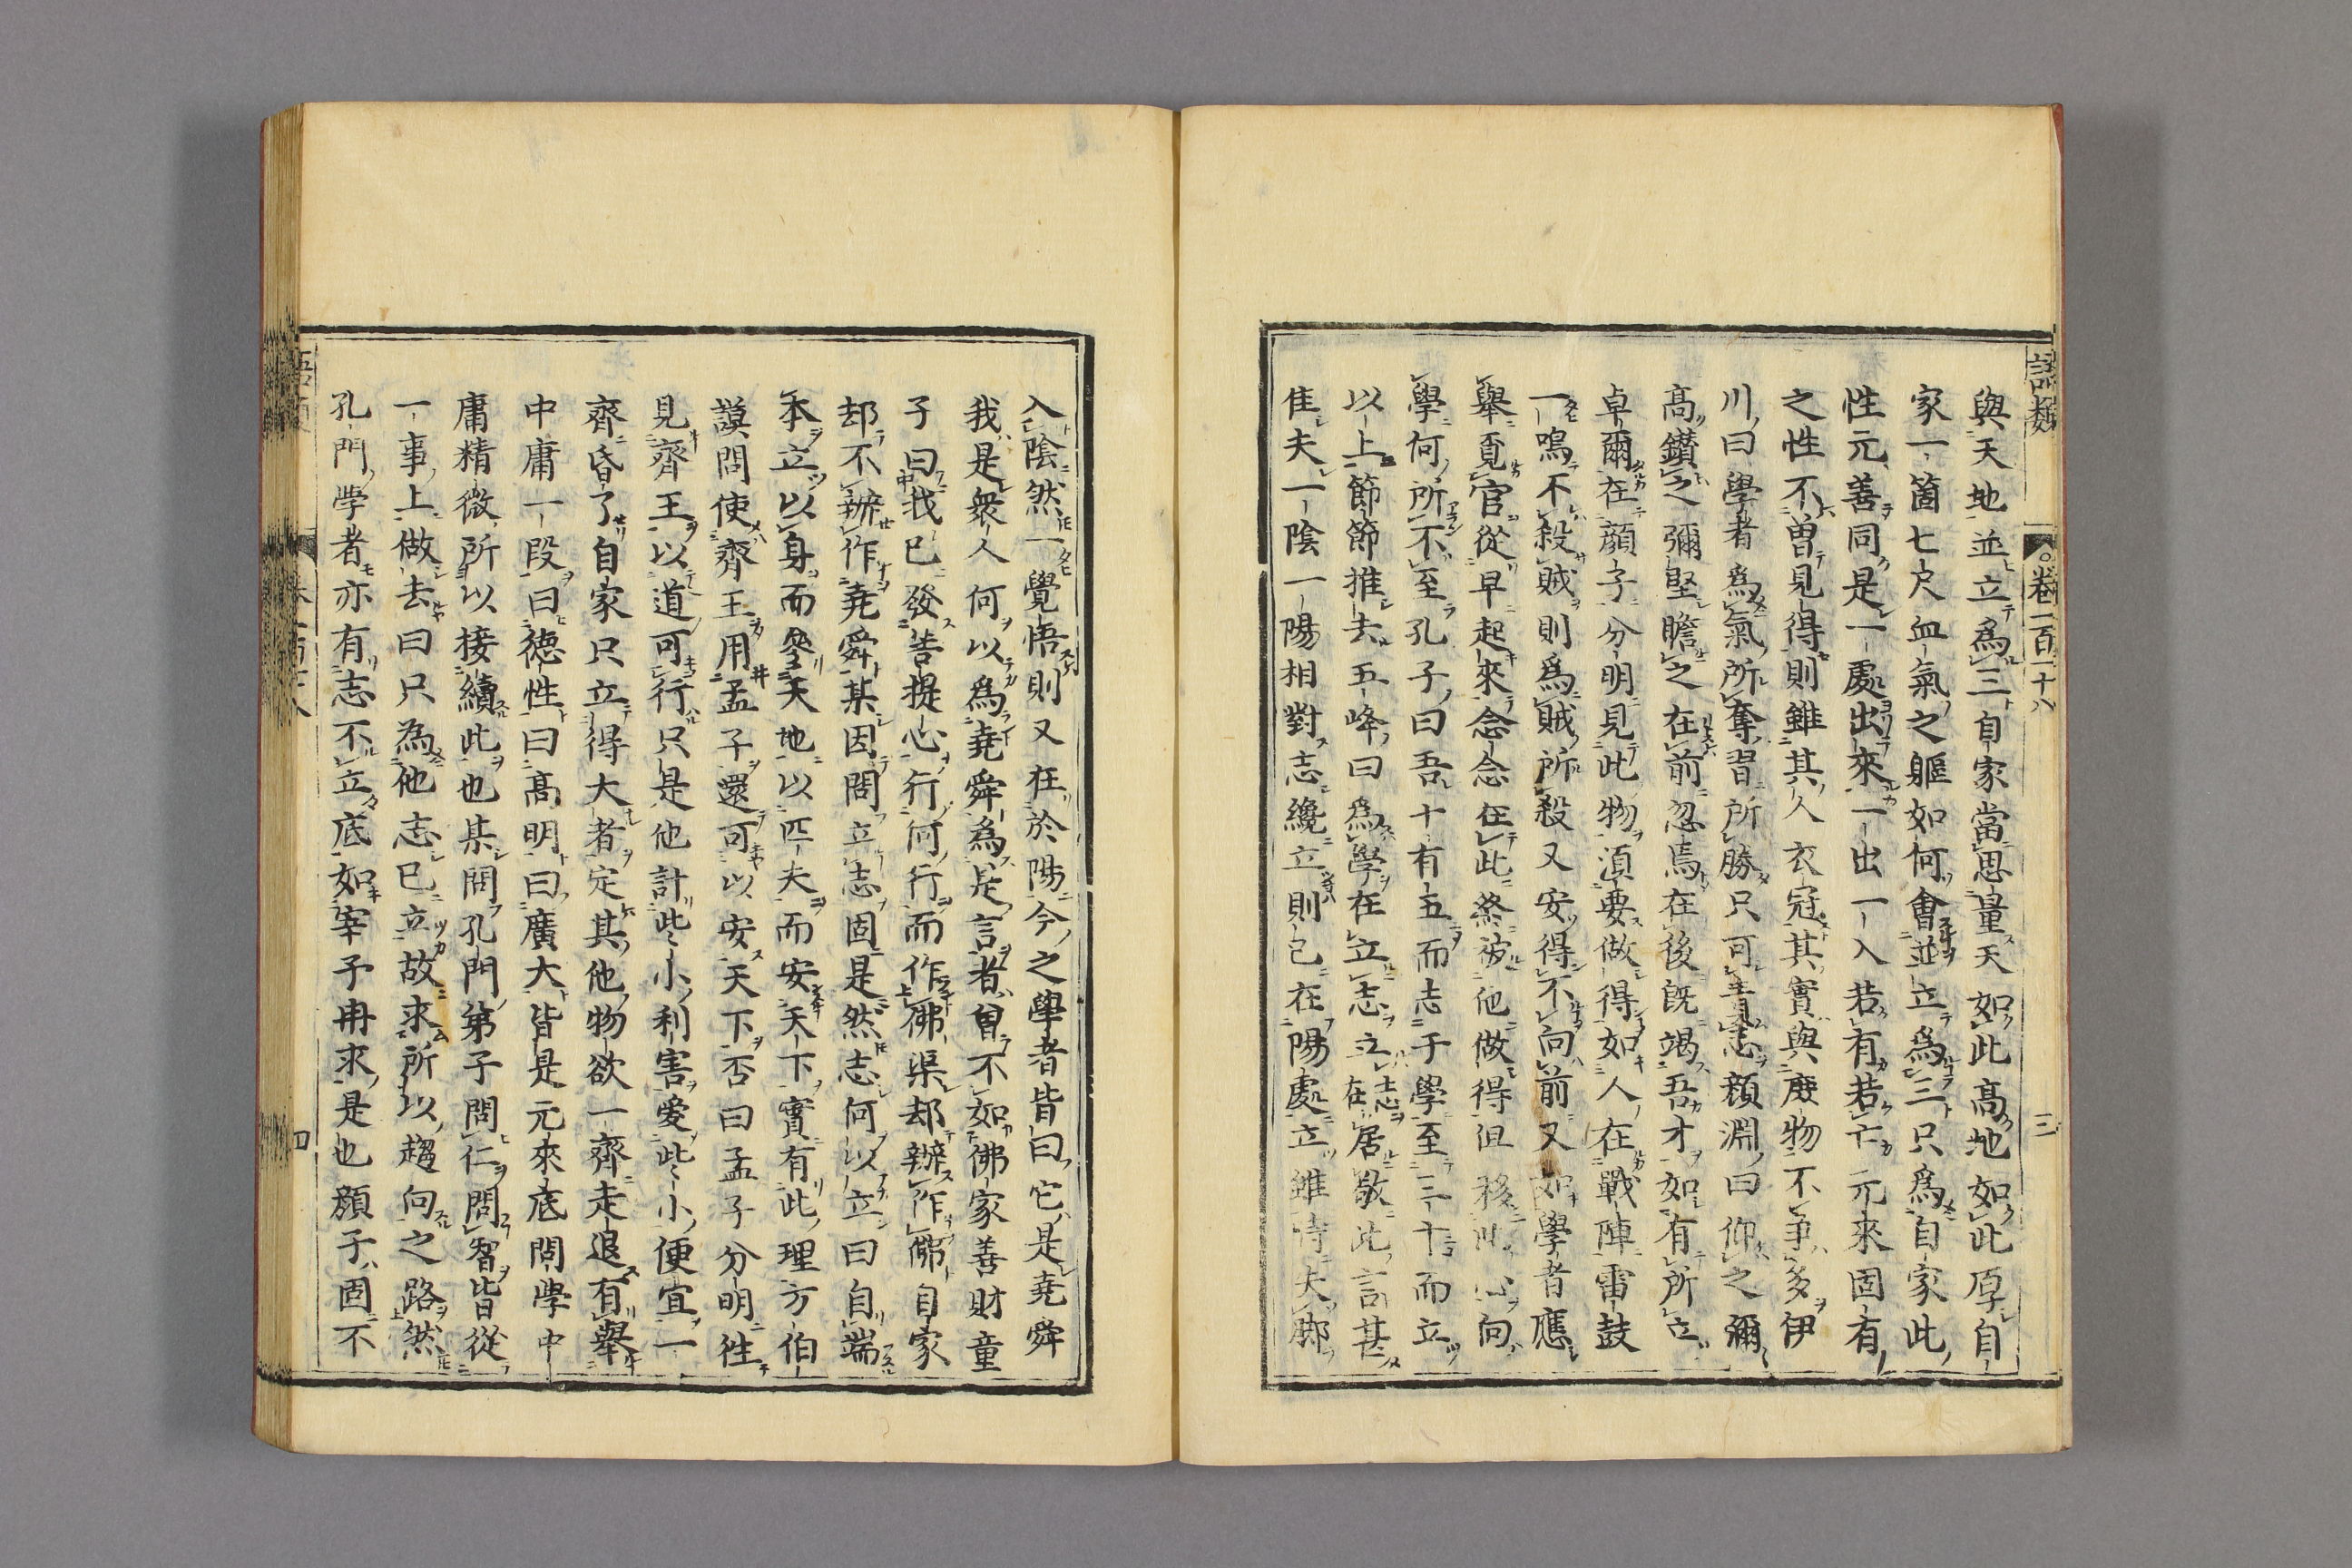 語類
卷一百一十八
三
與天地並立爲三自家當思量天如此高地如此厚自
家一箇七尺血氣之軀如何會並立爲三只爲自家此
性元善同是一處出來一出一入若有若亡元來固有
之性不曽見得則雖其人衣冠其實與庶物不爭多伊
川曰學者爲氣所奪習所勝只可責志顔淵曰仰之彌
高鑚之彌堅瞻之在前忽焉在後旣竭吾才如有所立
卓爾在顔子分明見此物須要做得如人在戰陣雷鼓
一鳴不殺賊則爲賊所殺又安得不向前又如學者應
舉覓官從早起來念念在此終被他做得但移此心向
學何所不至孔子曰吾十有五而志于學至三十而立
以上節節推去五峰曰爲學在立志立志在居敬此言甚
佳夫一陰一陽相對志纔立則已在陽處立雖時失脚
入陰然一覺悟則又在於陽今之學者皆曰它是堯舜
我是衆人何以爲堯舜爲是言者曽不如佛家善財童
子曰我已發菩提心行何行而作佛渠却辦作佛自家
却不辦作堯舜某因問立志固是然志何以立曰自端
本立以身而參天地以匹夫而安天下實有此理方伯
謨問使齊王用孟子還可以安天下否曰孟子分明徃
見齊王以道可行只是他計些小利害愛些小便宜一
齊昏了自家只立得大者定其他物欲一齊走退有舉
中庸一段曰德性曰高明曰廣大皆是元來底問學中
庸精微所以接續此也某問孔門弟子問仁問智皆從
一事上做去曰只為他志已立故求所以趨向之路然
孔門學者亦有志不立底如宰予冉求是也顔子固不
四